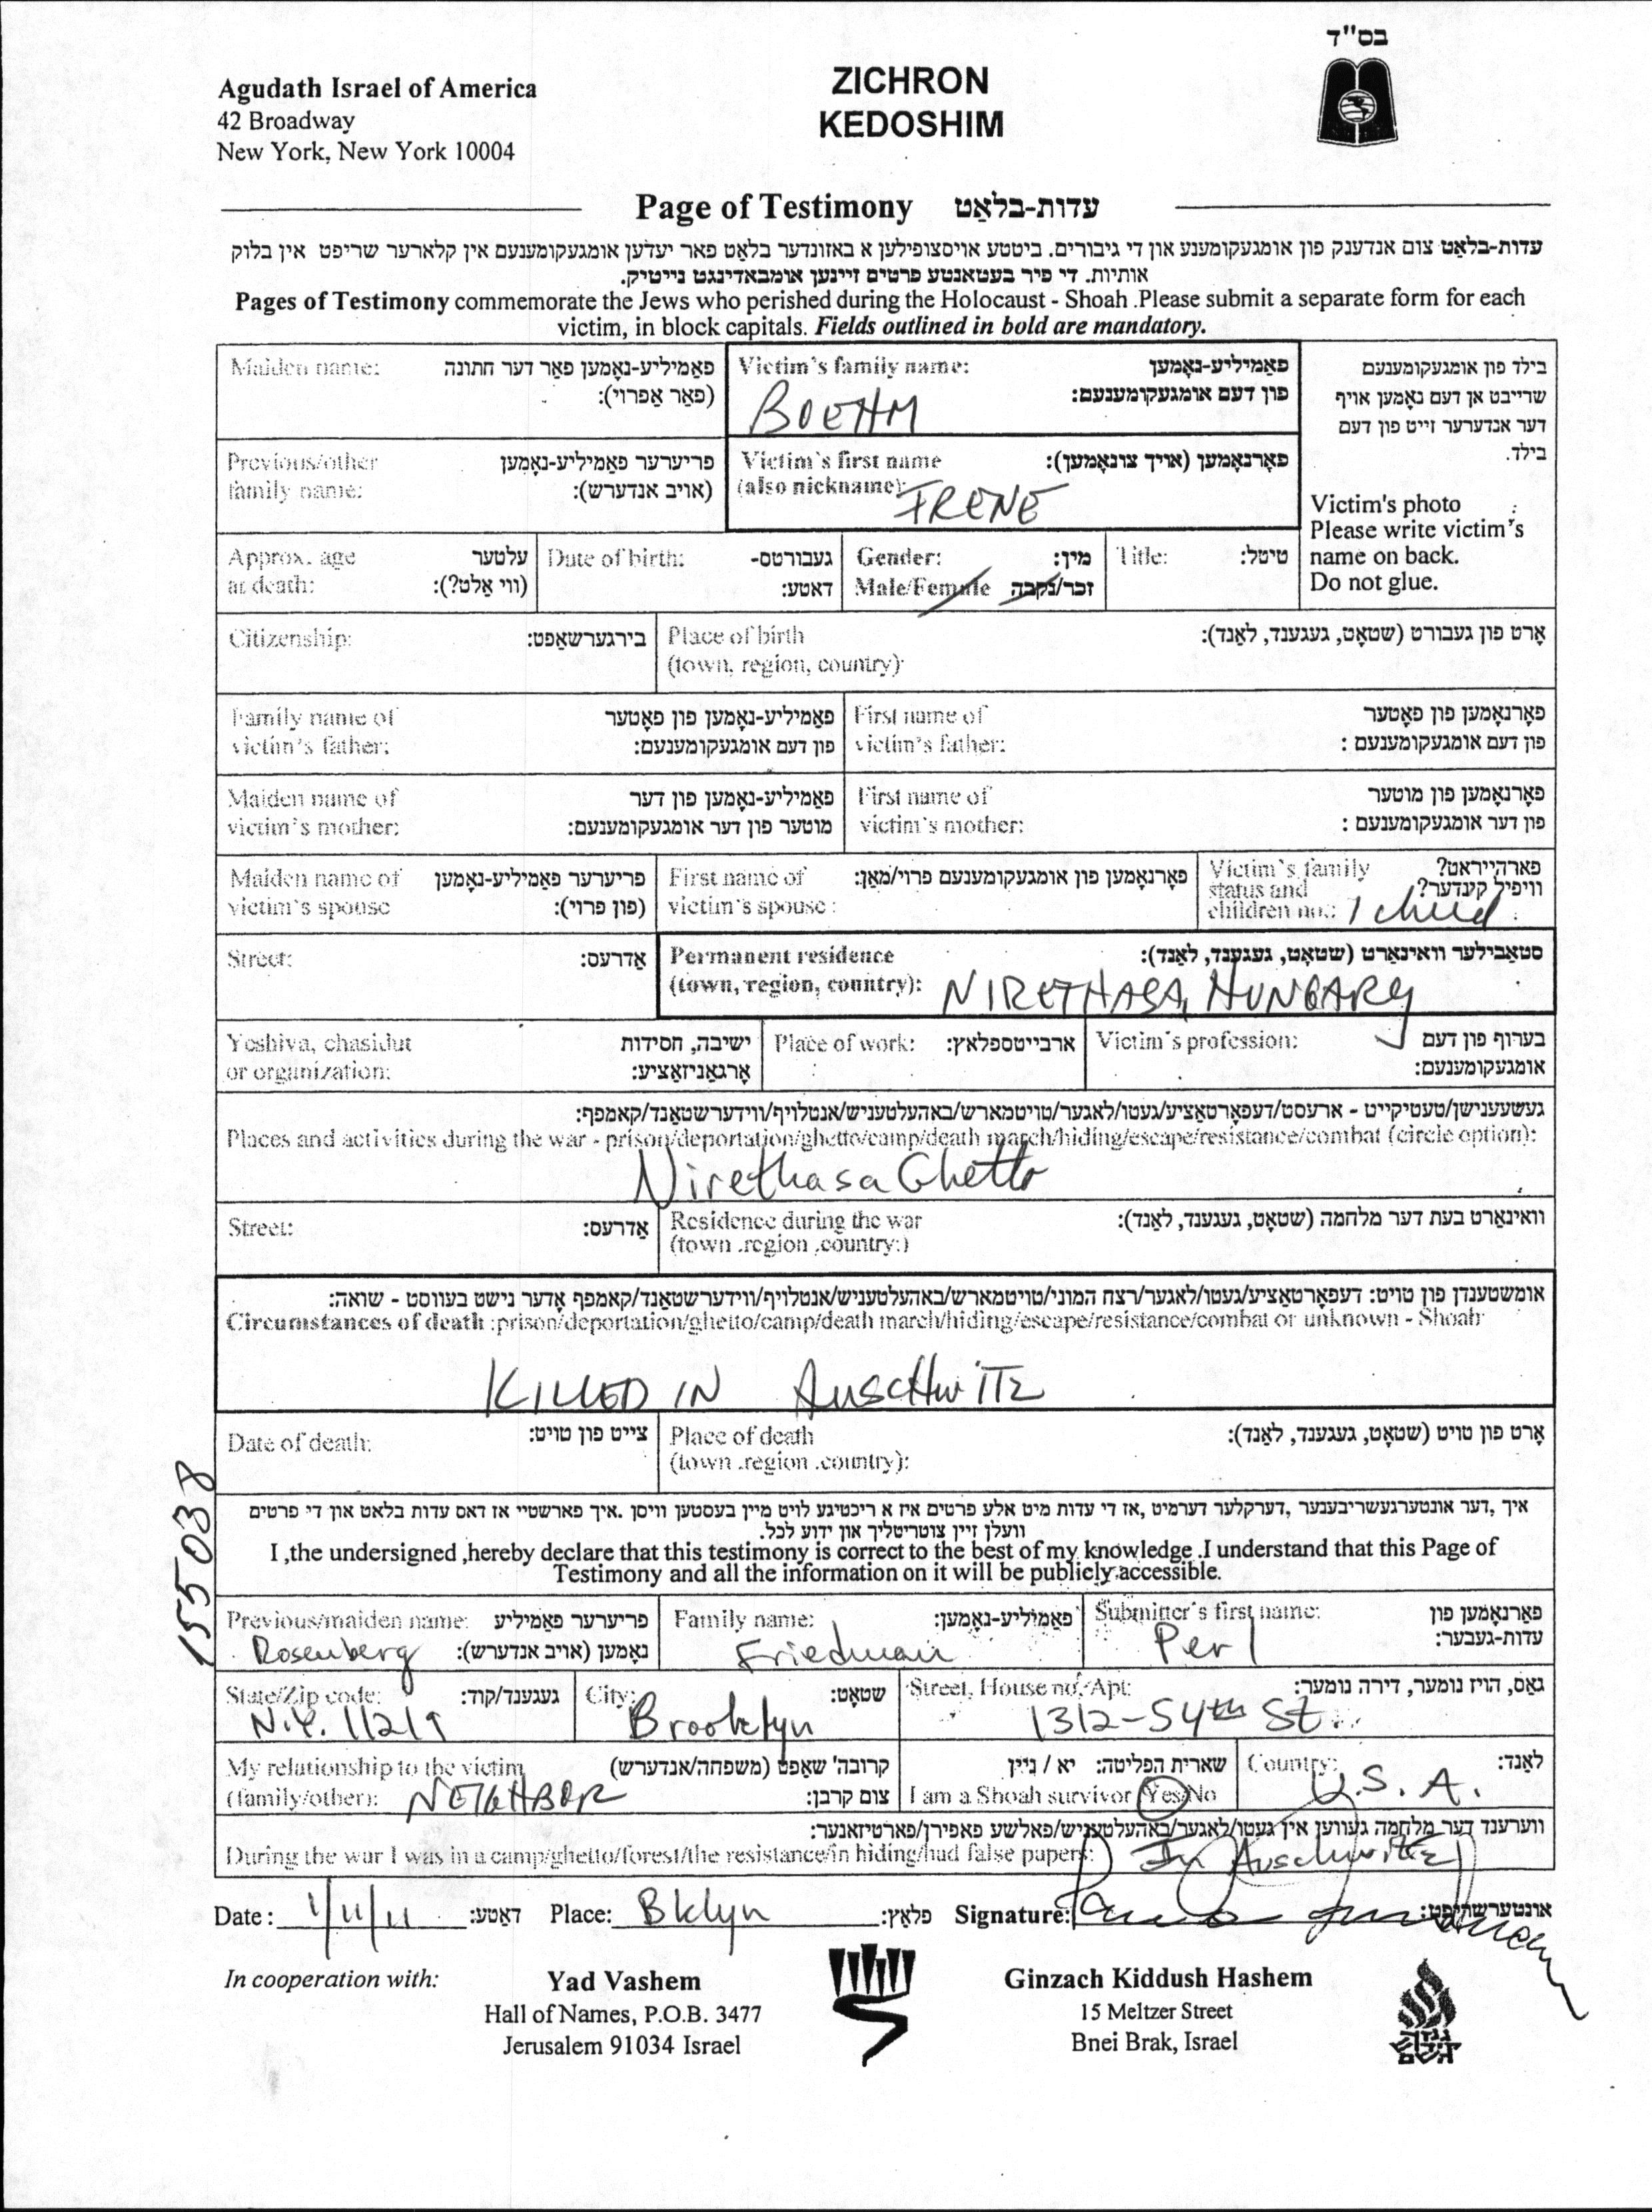 בס"ד
Agudath Israel of America
42 Broadway
New York, New York 10004
ZICHRON
KEDOSHIM
Page of Testimony עדות-בלאַט
עדות-בלאַט צום אנדענק פון אומגעקומענע און די גיבורים. ביטטע אויסצופילען א באזונדער בלאט פאר יעדען אומגעקומענעם אין קלארער שריפט אין בלוק
אותיות. די פיר בעטאנטע פרטים זיינען אומבאדינגט נייטיק.
Pages of Testimony commemorate the Jews who perished during the Holocaust - Shoah .Please submit a separate form for each
victim, in block capitals. Fields outlined in bold are mandatory.
Maiden name: פאַמיליע-נאָמען פאַר דער חתונה
(פאר אַפרוי):
Victim's family name: פאַמיליע-נאָמען
פון דעם אומגעקומענעם:
BOEHM
בילד פון אומגעקומענעם
שרייבט אן דעם נאָמען אויף
דער אנדערער זייט פון דעם
בילד.
Victim's photo
Please write victim's
name on back.
Do not glue.
Previous/other פריערער פאַמיליע-נאָמען
family name: (אויב אנדערש):
Victim's first name פאָרנאָמען (אויך צונאָמען):
(also nickname):
IRENE
Approx. age עלטער
at death: (ווי אַלט?):
Date of birth: געבורטס-
דאטע:
Gender: מין:
Male/Female זכר/נקבה
Title: טיטל:
Citizenship: בירגערשאַפט:
Place of birth אָרט פון געבורט (שטאָט, געגענד, לאַנד):
(town, region, country):
Family name of פאַמיליע-נאָמען פון פאָטער
victim's father: פון דעם אומגעקומענעם:
First name of פאָרנאָמען פון פאָטער
victim's father: פון דעם אומגעקומענעם :
Maiden name of פאַמיליע-נאָמען פון דער
victim's mother: מוטער פון דער אומגעקומענעם:
First name of פאָרנאָמען פון מוטער
victim's mother: פון דער אומגעקומענעם :
Maiden name of פריערער פאַמיליע-נאָמען
victim's spouse (פון פרוי):
First name of פאָרנאָמען פון אומגעקומענעם פרוי/מאַן:
victim's spouse :
Victim's family פארהייראט?
status and וויפיל קינדער?
children no.: 1 child
Street: אַדרעס:
Permanent residence סטאַבילער וואוינאָרט (שטאָט, געגענד, לאַנד):
(town, region, country): NIRETHASA, HUNGARY
Yeshiva, chasidut ישיבה, חסידות
or organization: אָרגאַניזאַציע:
Place of work: ארבייטספלאץ:
Victim's profession: בערוף פון דעם
אומגעקומענעם:
געשעענישן/טעטיקייט - ארעסט/דעפאָרטאַציע/געטו/לאַגער/טויטמארש/באהעלטעניש/אנטלויף/ווידערשטאַנד/קאמפף:
Places and activities during the war - prison/deportation/ghetto/camp/death march/hiding/escape/resistance/combat (circle option):
Nirethasa Ghetto
Street: אַדרעס:
Residence during the war וואוינאָרט בעת דער מלחמה (שטאָט, געגענד, לאַנד):
(town .region .country:)
אומשטענדן פון טויט: דעפאָרטאַציע/געטו/לאגער/רצח המוני/טויטמארש/באהעלטעניש/אנטלויף/ווידערשטאַנד/קאמפף אָדער נישט בעוואוסט - שואה:
Circumstances of death :prison/deportation/ghetto/camp/death march/hiding/escape/resistance/combat or unknown - Shoah:
KILLED IN AUSCHWITZ
Date of death: צייט פון טויט:
Place of death אָרט פון טויט (שטאָט, געגענד, לאַנד):
(town .region .country):
איך ,דער אונטערגעשריבענער ,דערקלער דערמיט ,אז די עדות מיט אלע פרטים איז א ריכטיגע לויט מיין בעסטען וויסן .איך פארשטיי אז דאס עדות בלאט און די פרטים
וועלן זיין צוטריטליך און ידוע לכל.
I ,the undersigned ,hereby declare that this testimony is correct to the best of my knowledge .I understand that this Page of
Testimony and all the information on it will be publicly accessible.
155038
Previous/maiden name: פריערער פאַמיליע
Rosenberg נאָמען (אויב אנדערש):
Family name: פאַמיליע-נאָמען:
Friedman
Submitter's first name: פאָרנאָמען פון
עדות-געבער:
Perl
State/Zip code: געגענד/קוד:
N.Y. 11219
City: שטאָט:
Brooklyn
Street, House no./Apt: גאַס, הויז נומער, דירה נומער:
1312-54th St.
My relationship to the victim קרובה' שאַפט (משפחה/אנדערש)
(family/other): NEIGHBOR צום קרבן:
שארית הפליטה: יא / ניין
I am a Shoah survivor Yes/No
Country: לאַנד:
U.S.A.
ווערענד דער מלחמה געווען אין געטו/לאגער/באהעלטעניש/פאלשע פאפירן/פארטיזאנער:
During the war I was in a camp/ghetto/forest/the resistance/in hiding/had false papers: In Auschwitz
Date : 1/11/11 דאַטע: Place: Bklyn פלאַץ: Signature: אונטערשריפט:
In cooperation with:
Yad Vashem
Hall of Names, P.O.B. 3477
Jerusalem 91034 Israel
Ginzach Kiddush Hashem
15 Meltzer Street
Bnei Brak, Israel